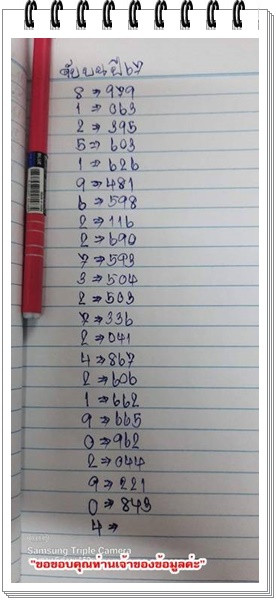 จับบนปี67
8⇒979
1⇒063
2⇒395
5⇒603
1⇒626
9⇒481
6⇒598
2⇒116
2⇒690
7⇒593
3⇒504
2⇒503
7⇒336
2⇒041
4⇒867
2⇒606
1⇒662
9⇒665
0⇒962
2⇒044
9⇒221
0⇒843
4⇒
Samsung Triple Camera
"ขอขอบคุณท่านเจ้าของข้อมูลค่ะ"